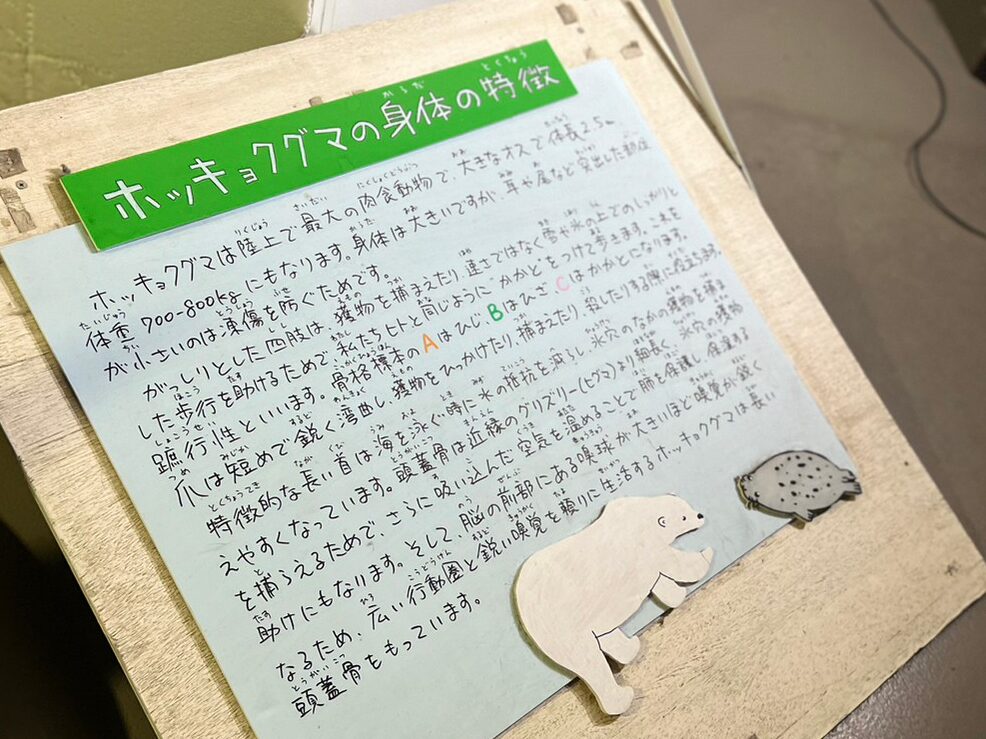 ホッキョクグマの身体の特徴
ホッキョクグマは陸上で最大の肉食動物で、大きなオスで体長2.5m
体重700-800kgにもなります。身体は大きいですが、耳や尾など突出した部位
が小さいのは凍傷を防ぐためです。
がっしりとした四肢は、獲物を捕まえたり、速さではなく雪や氷の上でのしっかりと
した歩行を助けるためで、私たちヒトと同じように"かかと"をつけて歩きます。これを
蹠行性といいます。骨格標本のAはひじ、Bはひざ、Cはかかとになります。
爪は短めで鋭く湾曲し、獲物をひっかけたり、捕まえたり、殺したりする際に役立ちます。
特徴的な長い首は、海を泳ぐ時に水の抵抗を減らし、氷穴のなかの獲物を捕ま
えやすくなっています。頭蓋骨は近縁のグリズリー(ヒグマ)より細長く、氷穴の獲物
を捕らえるためで、さらに吸い込んだ空気を温めることで肺を保護し、保温する
助けにもなります。そして、脳の前部にある嗅球が大きいほど嗅覚が鋭く
なるため、広い行動圏と鋭い嗅覚を頼りに生活するホッキョクグマは長い
頭蓋骨をもっています。